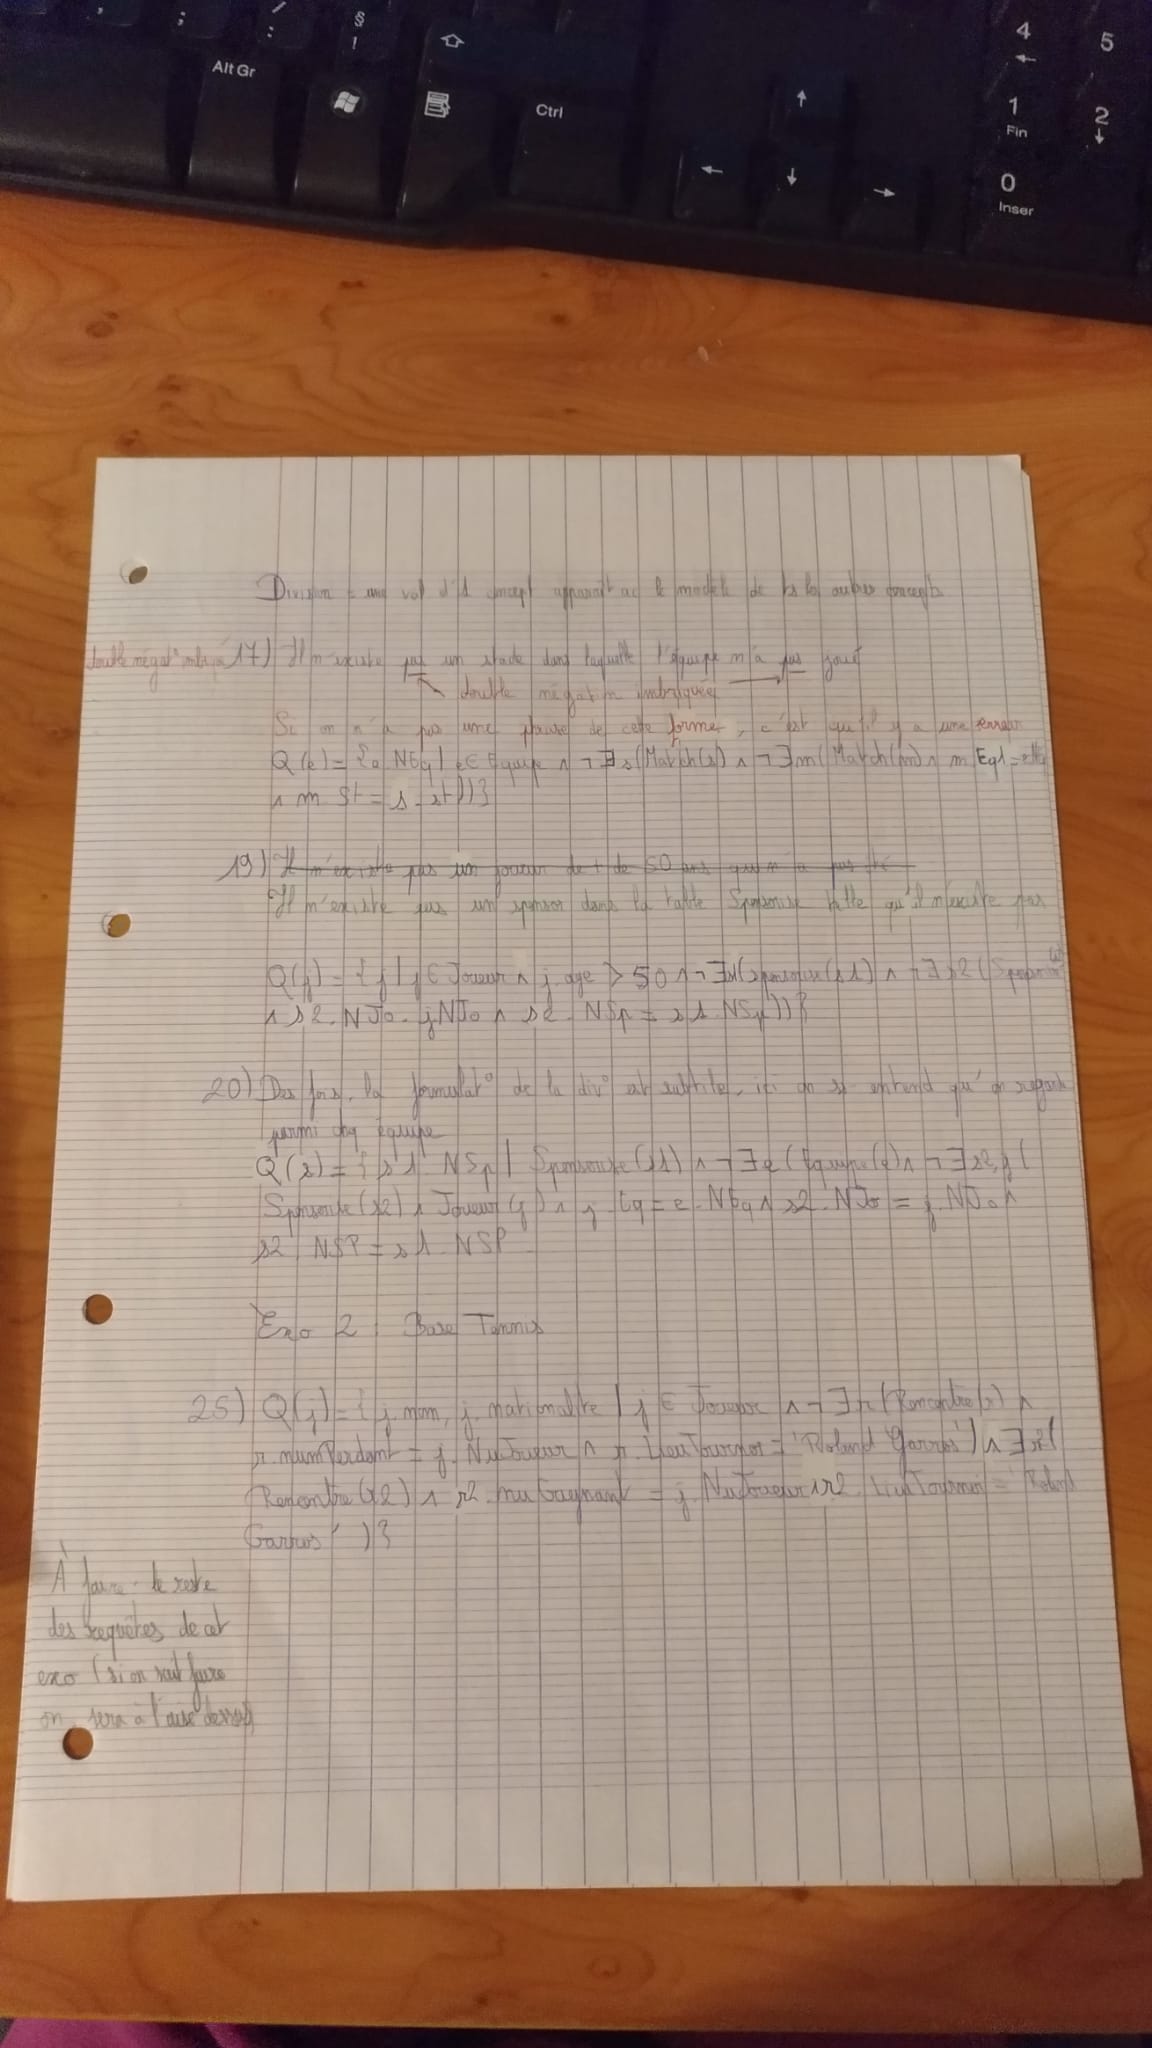 ; /
: § !
4 5
Alt Gr
Ctrl
1 Fin 2
0 Inser
Division = une val d'1 concept apparaît ac le modèle de ts les autres concepts
double négat° imbriquée 17) Il n'existe pas un stade dans laquelle l'équipe n'a pas joué
double négation imbriquée
Si on n'a pas une phrase de cette forme, c'est qu'il y a une erreur
Q(e) = {e.NEq | e ∈ Equipe ∧ ¬∃s(Match(s) ∧ ¬∃m(Match(m) ∧ m.Eq1 =
∧ m.St = s.st))}
19) Il n'existe pas un joueur de + de 50 ans qui n'a pas été
Il n'existe pas un sponsor dans la table Sponsorise telle qu'il n'existe pas
Q(j) = {j | j ∈ Joueur ∧ j.age > 50 ∧ ¬∃s1(Sponsorise(s1) ∧ ¬∃s2(
∧ s2.NJo = j.NJo ∧ s2.NSp = s1.NSp))}
20) Des fois, la formulat° de la div° est subtile, ici on ss-entend qu'on regarde
parmi chq équipe
Q(s) = {s1.NSp | Sponsorise(s1) ∧ ¬∃e(Equipe(e) ∧ ¬∃s2,j(
Sponsorise(s2) ∧ Joueur(j) ∧ j.Eq = e.NEq ∧ s2.NJo = j.NJo ∧
s2.NSP = s1.NSP
Exo 2 : Base Tennis
25) Q(j) = {j.nom, j.nationalite | j ∈ Joueur ∧ ¬∃r(Rencontre(r) ∧
r.numPerdant = j.NuJoueur ∧ r.LieuTournoi = 'Roland Garros') ∧ ∃r2(
Rencontre(r2) ∧ r2.nuGagnant = j.NuJoueur ∧ r2.LieuTournoi = 'Roland
Garros')}
À faire : le reste
des requêtes de cet
exo (si on sait faire
on sera à l'aise dessus)